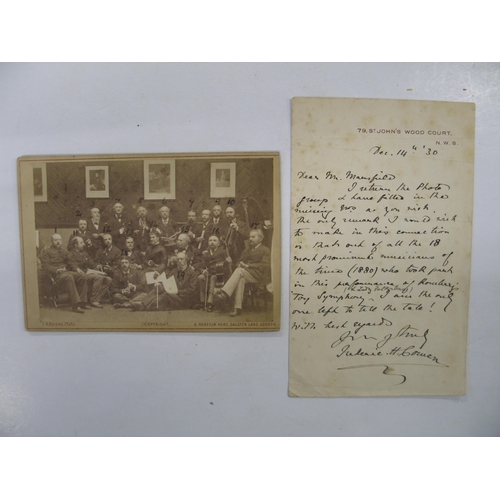 79, ST JOHN'S WOOD COURT,
N.W.8.
Dec. 14th '30
Dear Mr. Mansfield
I return the Photo
group & have filled in the
missing two as you wish.
The only remark I would wish
to make in this connection
is that out of all the 18
most prominent musicians of
the time (1880) who took part
in this performance of Romberg's
Toy Symphony, I am the only
one left to tell the tale!
With best regards
Yours truly
Frederic H. Cowen